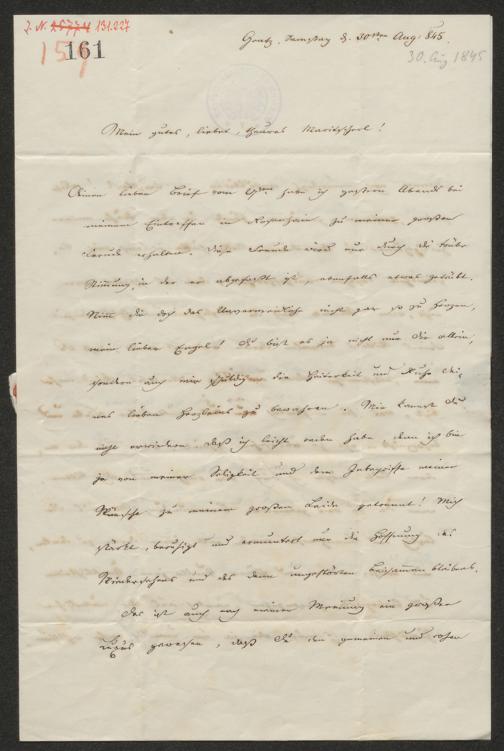 J. N. 25774 131.227
157
161
Gratz, Samstag d. 30ten Aug. 845.
30. Aug 1845
Mein gutes, liebes, theures Marischerl!
Deinen lieben Brief vom habe ich gestern Abends bei
meinem Eintreffen in zu meiner großen
Freude erhalten. Diese Freude wird nur durch die trübe
Stimmung, in der er abgefaßt ist, ebenfalls etwas getrübt.
Nimm dir doch das Unvermeidliche nicht gar so zu Herzen,
mein lieber Engel! Du bist es ja nicht nur dir allein,
sondern auch mir schuldig die Heiterkeit und Ruhe dei-
nes lieben Herzleins zu bewahren. Mir kannst du
nicht erwiedern, daß ich leicht reden habe, denn ich bin
ja von meiner Seligkeit und dem Inbegriffe meiner
Wünsche zu meinem großen Leide getrennt! Mich
stärkt, beruhigt und ermuntert nur die Hoffnung des
Wiedersehens und des dann ungestörten Beisammenbleibens.
Das ist auch nach meiner Meinung ein großer
Luxus gewesen, daß du den gemeinen und rohen